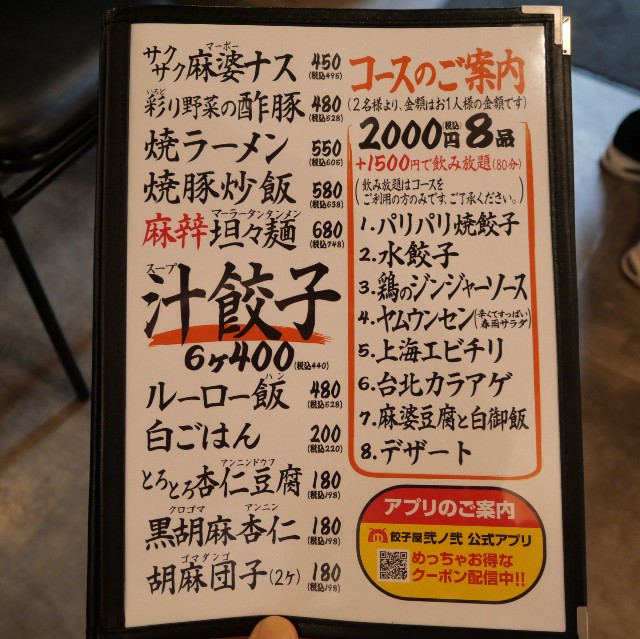 マーボー
サクサク麻婆ナス 450
(税込495)
いろど
彩り野菜の酢豚 480
(税込528)
焼ラーメン 550
(税込605)
焼豚炒飯 580
(税込638)
マーラータンタンメン
麻辣坦々麺 680
(税込748)
スープ
汁餃子
6ヶ400(税込440)
ハン
ルーロー飯 480
(税込528)
白ごはん 200
(税込220)
アンニンドウフ
とろとろ杏仁豆腐 180
(税込198)
クロゴマ アンニン
黒胡麻杏仁 180
(税込198)
ゴマダンゴ
胡麻団子(2ヶ) 180
(税込198)
コースのご案内
(2名様より、金額はお1人様の金額です)
2000円(税込)8品
+1500円で飲み放題(80分)
(飲み放題はコースを
ご利用の方のみです、ご了承ください。)
1.パリパリ焼餃子
2.水餃子
3.鶏のジンジャーソース
4.ヤムウンセン(辛くてすっぱい春雨サラダ)
5.上海エビチリ
6.台北カラアゲ
7.麻婆豆腐と白御飯
8.デザート
アプリのご案内
餃子屋弐ノ弐 公式アプリ
めっちゃお得な
クーポン配信中!!